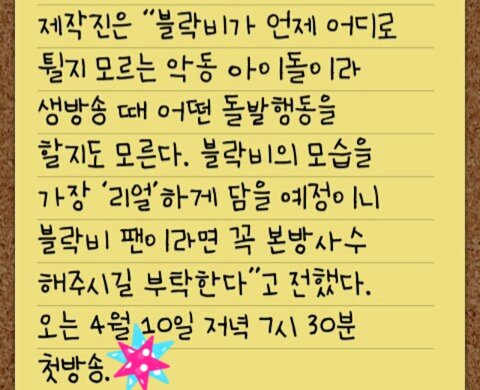 제작진은 “블락비가 언제 어디로
튈지 모르는 악동 아이돌이라
생방송 때 어떤 돌발행동을
할지도 모른다. 블락비의 모습을
가장 ‘리얼’하게 담을 예정이니
블락비 팬이라면 꼭 본방사수
해주시길 부탁한다”고 전했다.
오는 4월 10일 저녁 7시 30분
첫방송.